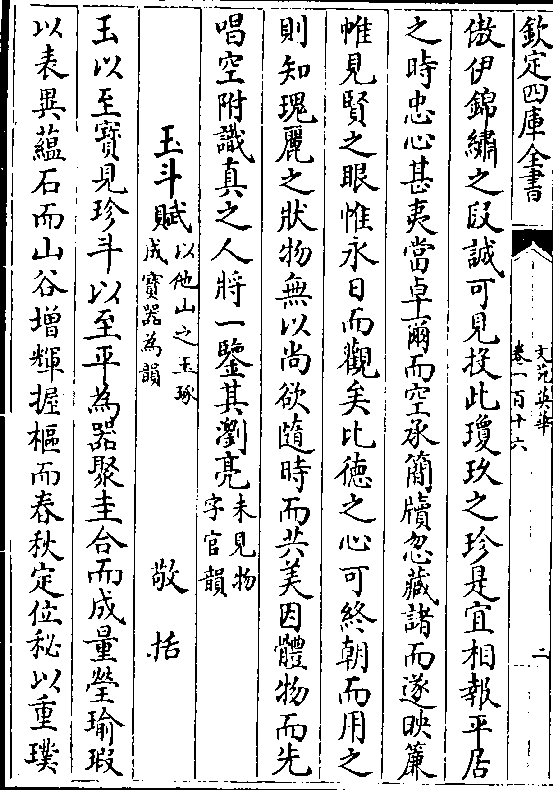 欽定四庫全書
文苑英華
卷一百十六
二
傲伊錦繡之段誠可見投此瓊玖之珍是宜相報平居
之時忠心甚夷當卓爾而空承簡牘忽藏諸而遂映簾
帷見賢之眼惟永日而觀矣比徳之心可終朝而用之
則知瑰麗之狀物無以尚欲隨時而共美因體物而先
唱空附識真之人將一鑒其瀏亮未見物字官韻
玉斗賦以他山之玉琢成寶器為韻
敬括
玉以至寶見珍斗以至平為器聚圭合而成量瑩瑜瑕
以表異蘊石而山谷增輝握樞而春秋定位秘以重璞